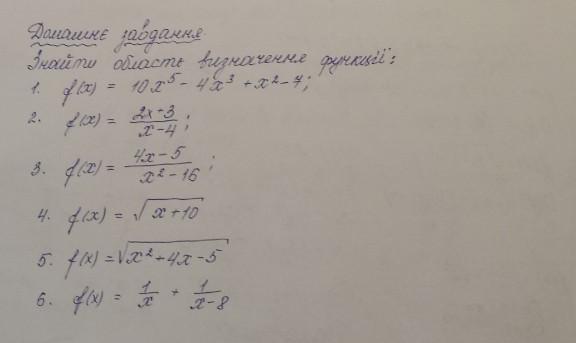 Домашнє завдання.
Знайти область визначення функції:
1. f(x) = 10x⁵ - 4x³ + x² - 7;
2. f(x) = (2x+3)/(x-4);
3. f(x) = (4x-5)/(x²-16);
4. f(x) = √(x+10)
5. f(x) = √(x²+4x-5)
6. f(x) = 1/x + 1/(x-8)